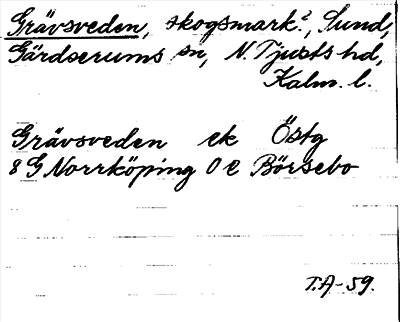 Grävsveden, skogsmark?, Sund,
Gärdserums sn, N. Tjusts hd,
Kalm. l.
Grävsveden ek Östg
8 G Norrköping 0 e Börsebo
T.A-59.